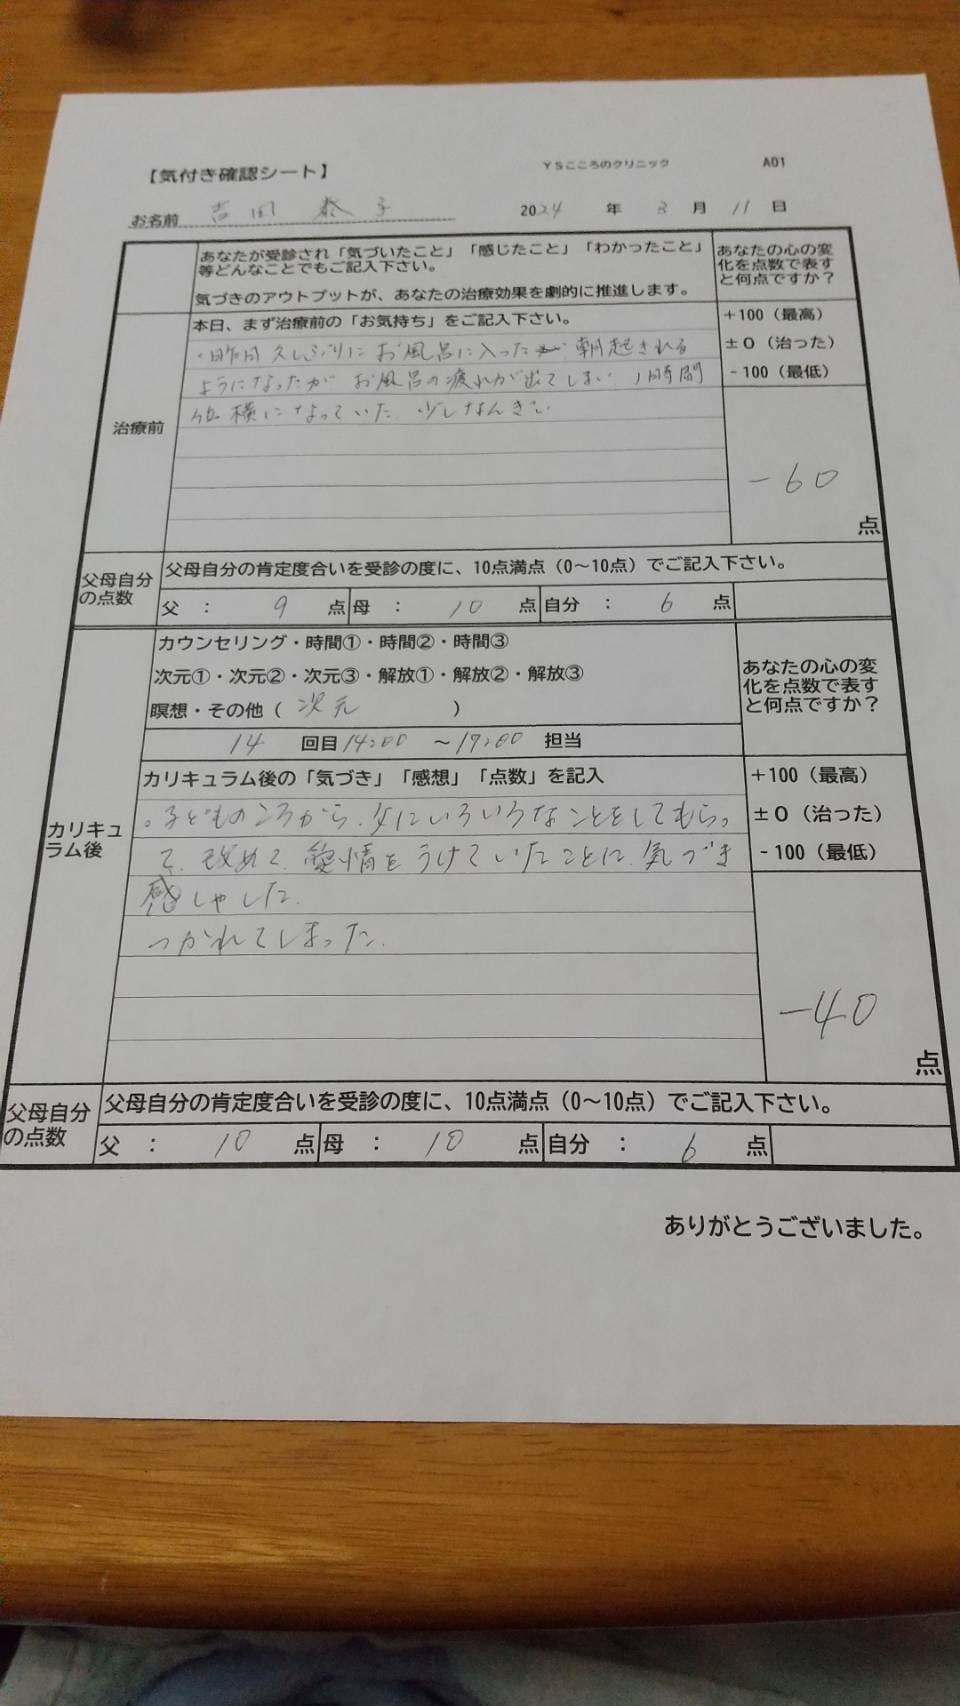 【気付き確認シート】
YSこころのクリニック
A01
お名前 吉田 泰子
2024 年 3 月 11 日
あなたが受診され「気づいたこと」「感じたこと」「わかったこと」
等どんなことでもご記入下さい。
気づきのアウトプットが、あなたの治療効果を劇的に推進します。
あなたの心の変
化を点数で表す
と何点ですか？
治療前
本日、まず治療前の「お気持ち」をご記入下さい。
・昨日久しぶりにお風呂に入った 朝起きれる
ようになったが お風呂の疲れが出てしまい 1時間
位横になっていた 少しなんぎい
+100（最高）
±0（治った）
-100（最低）
-60
点
父母自分
の点数
父母自分の肯定度合いを受診の度に、10点満点（0～10点）でご記入下さい。
父 ： 9 点 母 ： 10 点 自分 ： 6 点
カリキュ
ラム後
カウンセリング・時間①・時間②・時間③
次元①・次元②・次元③・解放①・解放②・解放③
瞑想・その他（ 次元 ）
14 回目 14:00 ～17:00 担当
あなたの心の変
化を点数で表す
と何点ですか？
カリキュラム後の「気づき」「感想」「点数」を記入
。子どものころから、父にいろいろなことをしてもらっ
て、改めて、愛情をうけていたことに気づき
感しゃした
つかれてしまった.
+100（最高）
±0（治った）
-100（最低）
-40
点
父母自分
の点数
父母自分の肯定度合いを受診の度に、10点満点（0～10点）でご記入下さい。
父 ： 10 点 母 ： 10 点 自分 ： 6 点
ありがとうございました。